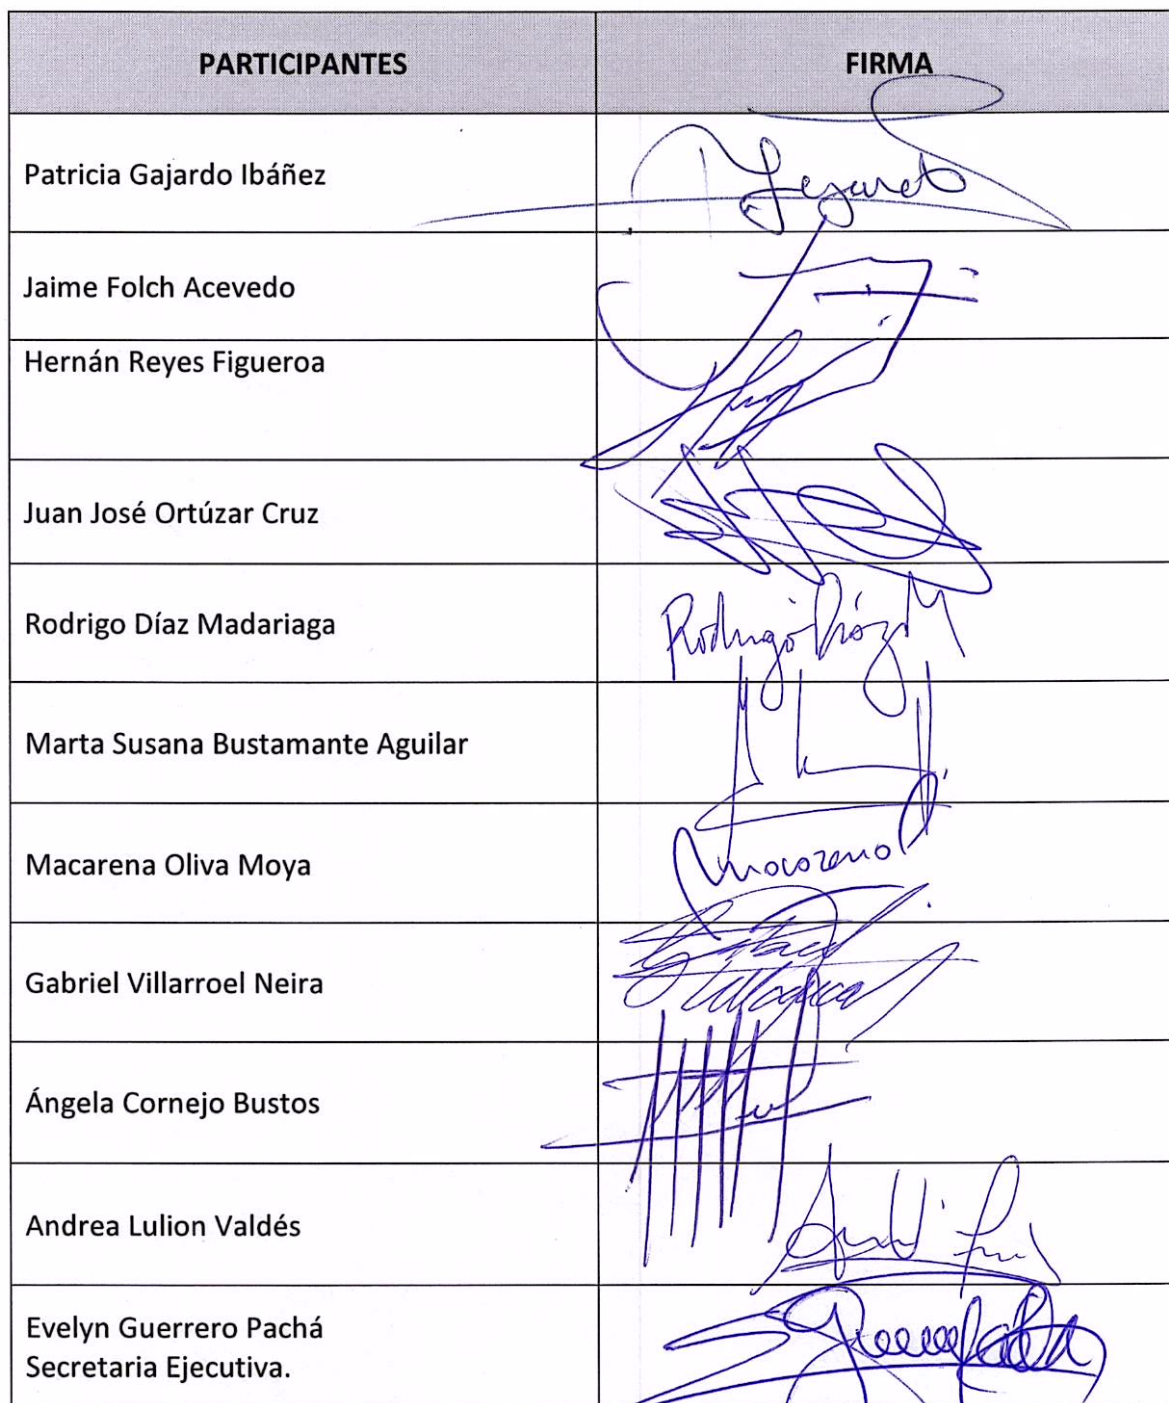 PARTICIPANTES FIRMA
Patricia Gajardo Ibáñez
Jaime Folch Acevedo
Hernán Reyes Figueroa
Juan José Ortúzar Cruz
Rodrigo Díaz Madariaga Rodrigo Díaz M
Marta Susana Bustamante Aguilar
Macarena Oliva Moya Macarena
Gabriel Villarroel Neira Gabriel
Villarroel
Ángela Cornejo Bustos
Andrea Lulion Valdés
Evelyn Guerrero Pachá
Secretaria Ejecutiva.